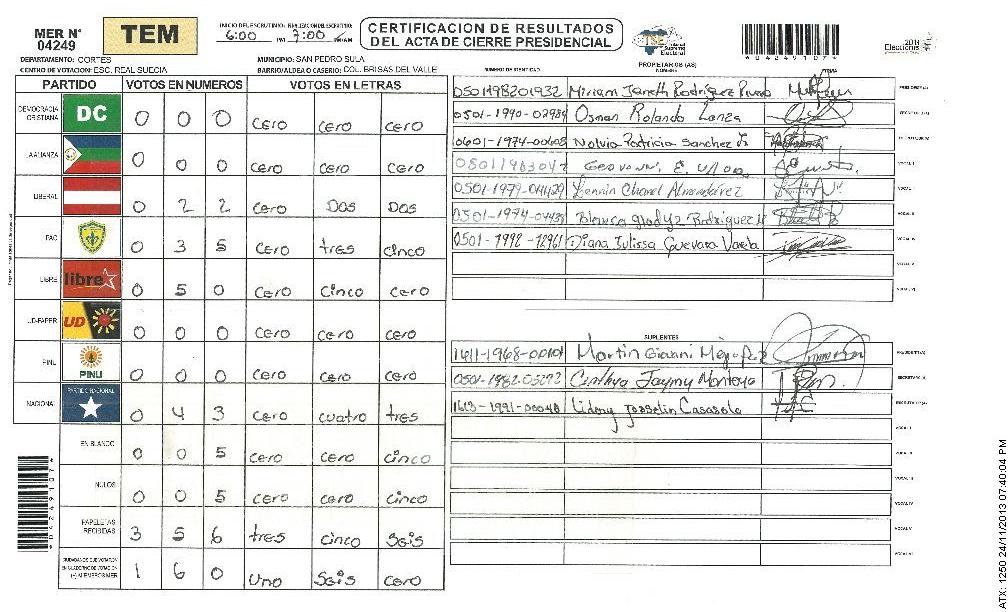 MER N° 04249
TEM
INICIO DEL ESCRUTINIO: 6:00 PM FINALIZACION DEL ESCRUTINIO: 7:00 PM/AM
CERTIFICACION DE RESULTADOS DEL ACTA DE CIERRE PRESIDENCIAL
TSE Tribunal Supremo Electoral
*04249107*
2013 Elecciones
DEPARTAMENTO: CORTES
MUNICIPIO: SAN PEDRO SULA
CENTRO DE VOTACION: ESC. REAL SUECIA
BARRIO/ALDEA O CASERIO: COL. BRISAS DEL VALLE
NUMERO DE IDENTIDAD PROPIETARIOS (AS) NOMBRE FIRMA
PARTIDO VOTOS EN NUMEROS VOTOS EN LETRAS
DEMOCRACIA CRISTIANA DC 0 0 0 Cero Cero Cero
AALIANZA 0 0 0 Cero Cero Cero
LIBERAL 0 2 2 Cero Dos Dos
PAC 0 3 5 Cero tres Cinco
LIBRE libre 0 5 0 Cero Cinco Cero
UD-FAPER UD 0 0 0 Cero Cero Cero
PINU PINU 0 0 0 Cero Cero Cero
NACIONAL PARTIDO NACIONAL 0 4 3 Cero cuatro tres
EN BLANCO 0 0 5 Cero Cero Cinco
NULOS 0 0 5 Cero Cero Cinco
PAPELETAS RECIBIDAS 3 5 6 tres cinco Seis
CIUDADANOS QUE VOTARON EN CUADERNO DE VOTACION (+) MIEMBROS MER 1 6 0 Uno Seis Cero
0501198201932 Miriam Janeth Rodriguez PRESIDENTE(A)
Osman Rolando Lanza SECRETARIO(A)
Nolvia Patricia Sanchez ESCRUTADOR(A)
VOCAL I
Lennin Chanel Almendárez VOCAL II
Blanca Gladyz Rodriguez VOCAL III
0501-1992-12961 Diana Julissa Guevara Varela VOCAL IV
VOCAL V
VOCAL VI
SUPLENTES
Martin Giovani PRESIDENTE(A)
Cinthya Jaymy Montoya SECRETARIO(A)
1613-1991-00048 Josselin Casasola ESCRUTADOR(A)
VOCAL I
VOCAL II
VOCAL III
VOCAL IV
VOCAL V
VOCAL VI
*04249107*
ATX: 1250 24/11/2013 07:40:04 PM